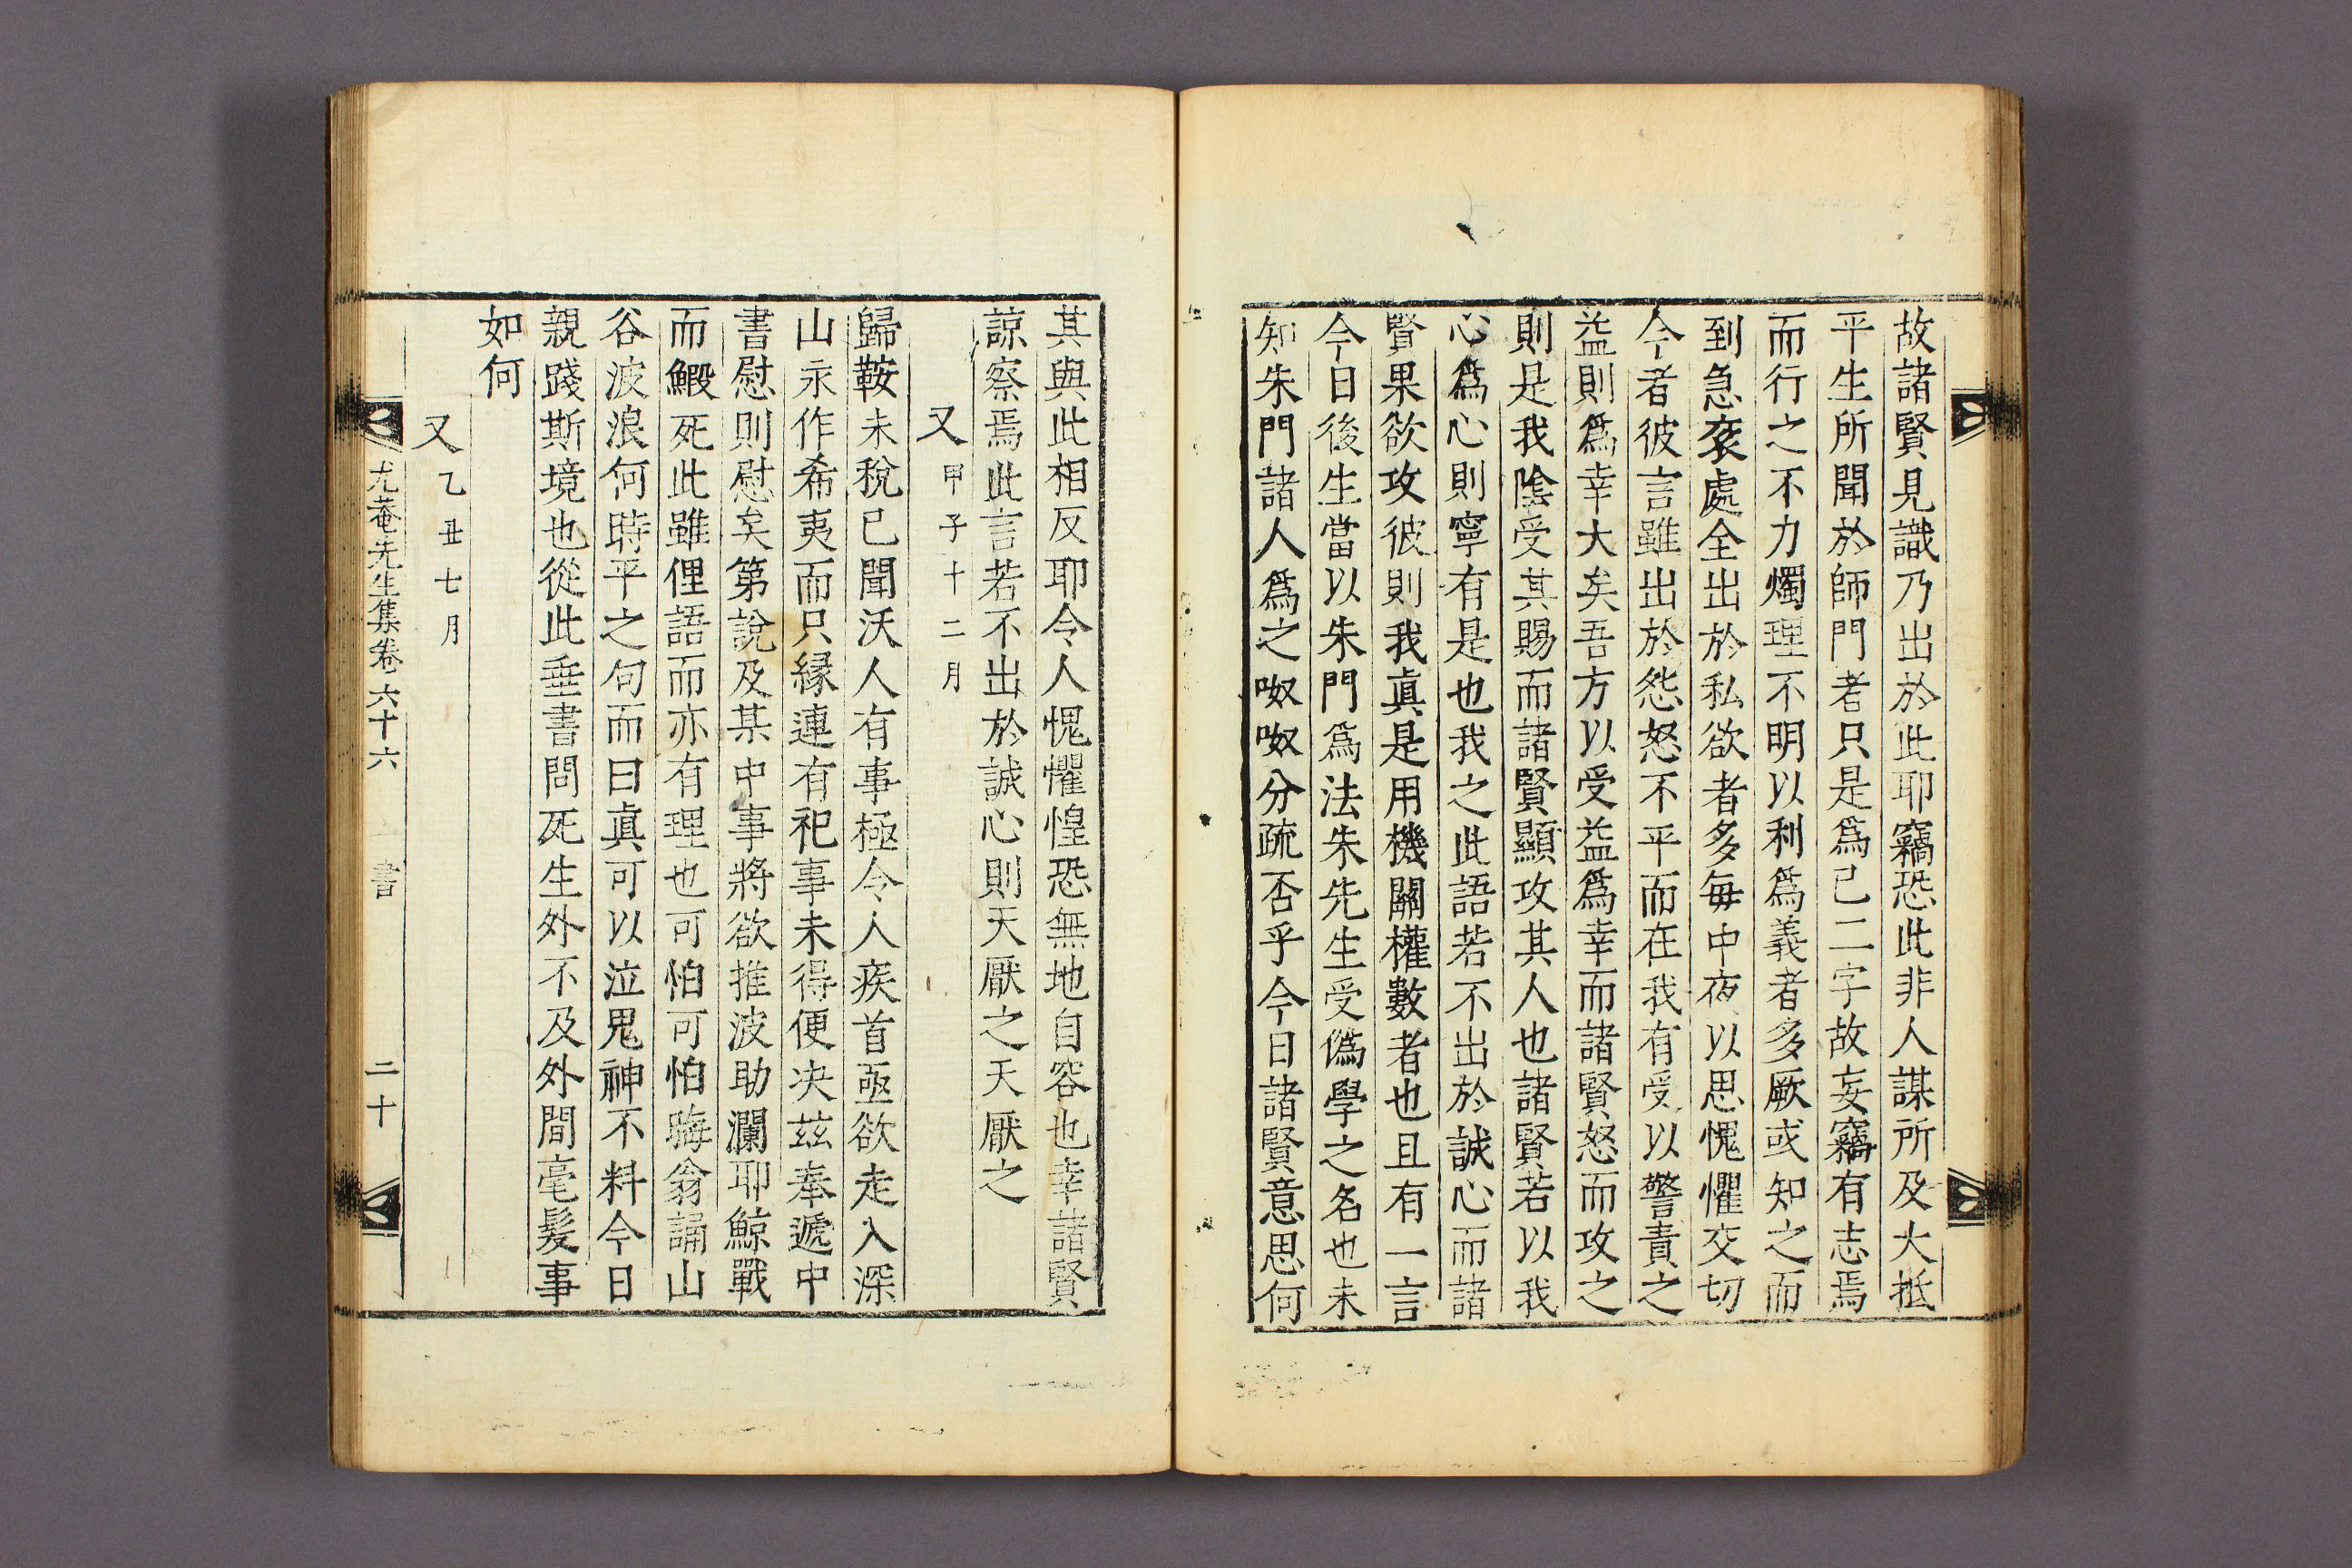 故諸賢見識乃出於此耶竊恐此非人謀所及大抵
平生所聞於師門者只是爲己二字故妄竊有志焉
而行之不力燭理不明以利爲義者多厥或知之而
到急衮處全出於私欲者多每中夜以思愧懼交切
今者彼言雖出於怨怒不平而在我有受以警責之
益則爲幸大矣吾方以受益爲幸而諸賢怒而攻之
則是我陰受其賜而諸賢顯攻其人也諸賢若以我
心爲心則寧有是也我之此語若不出於誠心而諸
賢果欲攻彼則我眞是用機關權數者也且有一言
今日後生當以朱門爲法朱先生受僞學之名也未
知朱門諸人爲之呶呶分疏否乎今日諸賢意思何
其與此相反耶令人愧懼惶恐無地自容也幸諸賢
諒察焉此言若不出於誠心則天厭之天厭之
又甲子十二月
歸鞍未稅已聞沃人有事極令人疾首亟欲走入深
山永作希夷而只緣連有祀事未得便决玆奉遞中
書慰則慰矣第說及某中事將欲推波助瀾耶鯨戰
而鰕死此雖俚語而亦有理也可怕可怕晦翁誦山
谷波浪何時平之句而曰眞可以泣鬼神不料今日
親踐斯境也從此垂書問死生外不及外間毫髮事
如何
又乙丑七月
尤菴先生集卷六十六 書 二十